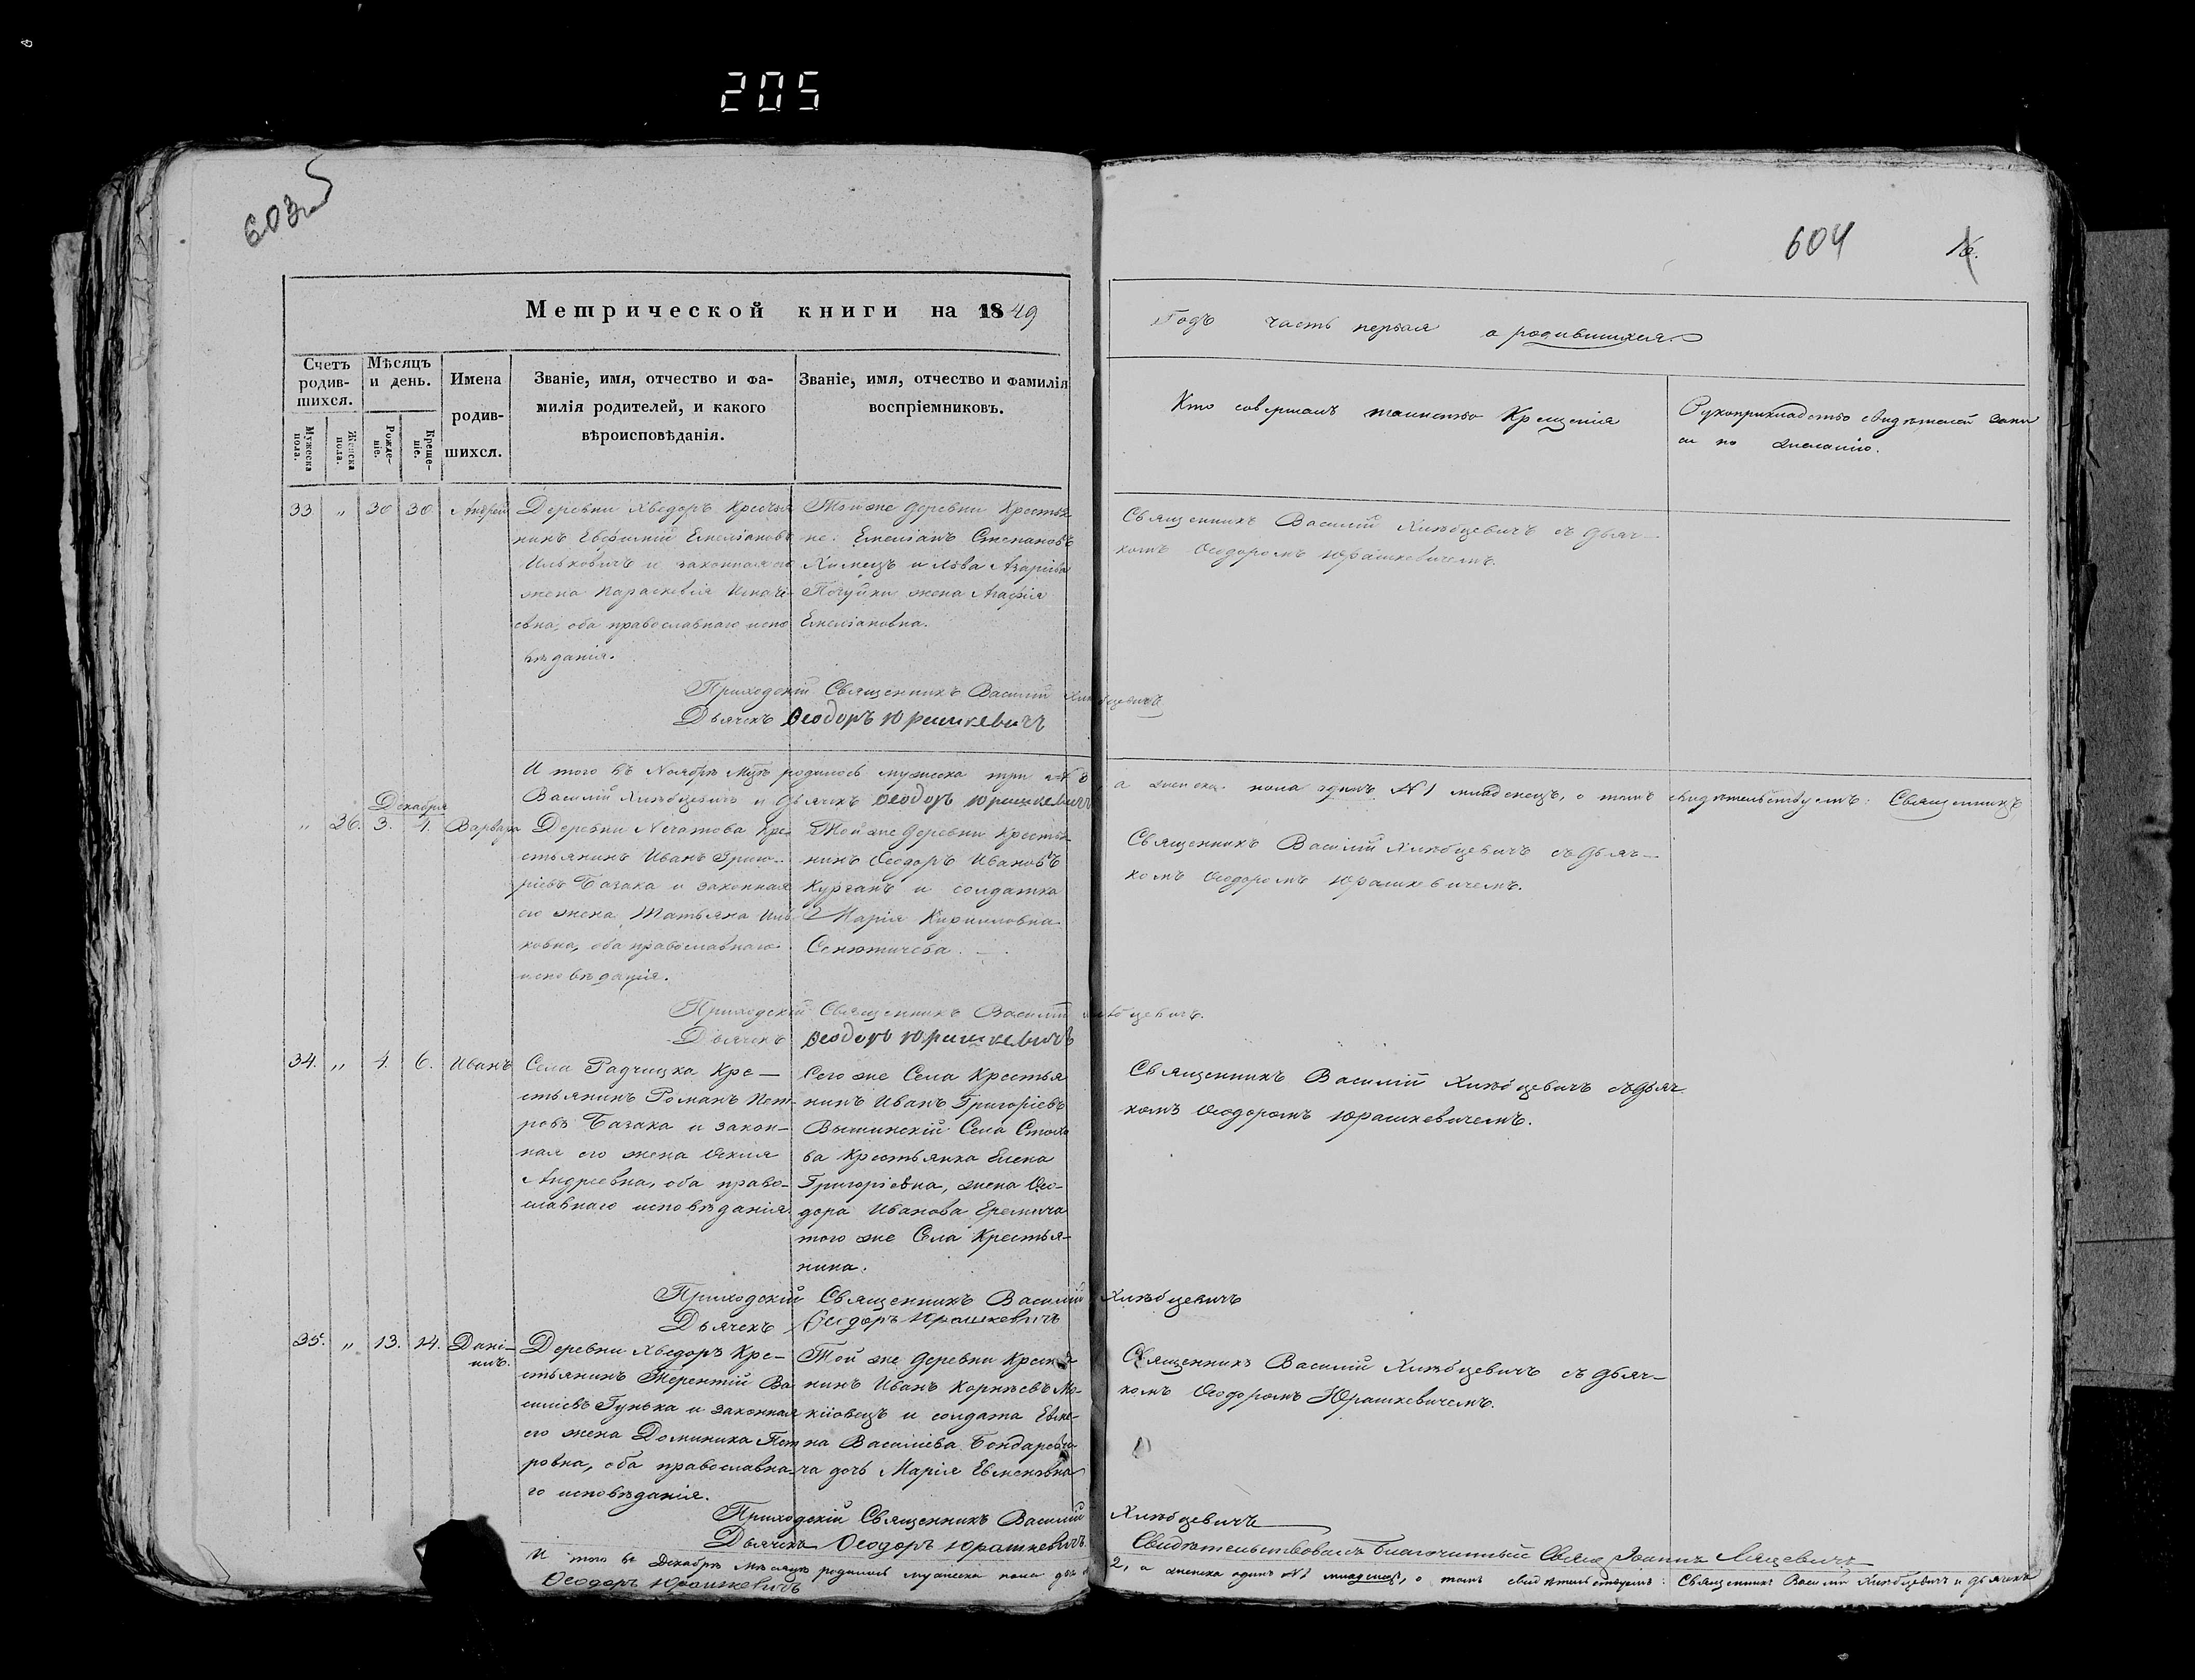 205
603
604
16.
Метрической книги на 1849
Годъ часть первая о родившихся.
Счетъ родив-шихся.
Мѣсяцъ и день.
Имена родив-шихся.
Званіе, имя, отчество и фа-
милія родителей, и какого
вѣроисповѣданія.
Званіе, имя, отчество и фамилія
воспріемниковъ.
Мужеска пола.
Женска пола.
Рожде-ніе.
Креще-ніе.
Кто совершалъ таинство Крещенія
Рукоприкладство свидѣтелей запи
си по желанію.
33 " 30 30 Андрей
Деревни Хведоръ Кресья
нинъ Евфимій Емеліановъ
Ильковичъ и законная его
жена Параскевія Игнаті-
евна, оба православнаго испо
вѣданія.
Той же деревни Крестья
не: Емеліанъ Степановъ
Химецъ и Льва Азаріева
жена Агафія
Емеліановна.
Священникъ Василій Хлѣбцевичъ съ дьяч-
комъ Ѳеодоромъ Юрашкевичемъ.
Приходскій Священникъ Василій Хлѣбцевичъ
Дьячекъ Ѳеодоръ Юрашкевичъ
И того въ Ноябрѣ мцѣ родилось мужеска три №3 а женска пола одинъ №1 младенецъ, о томъ свидѣтельствуемъ: Священникъ
Василій Хлѣбцевичъ и дьячекъ Ѳеодоръ Юрашкевичъ
Декабря
" 26. 3. 4. Варвара
Деревни Нечатова Кре
стьянинъ Иванъ Григо-
ріевъ Базака и законная
его жена Татьяна Иль
ковна, оба православнаго
исповѣданія.
Той же деревни Крестья
нинъ Ѳеодоръ Ивановъ
Курганъ и солдатка
Марія Кирилловна
Сенютичева.
Священникъ Василій Хлѣбцевичъ съ дьяч-
комъ Ѳеодоромъ Юрашкевичемъ.
Приходскій Священникъ Василій Хлѣбцевичъ.
Дьячекъ Ѳеодоръ Юрашкевичъ
34. " 4. 6. Иванъ
Села Радчицка Кре-
стьянинъ Романъ Пет-
ровъ Базака и закон-
ная его жена
Андреевна, оба право-
славнаго исповѣданія.
Сего же Села Крестья
нинъ Иванъ Григоріевъ
Вышинскій Села Столи
ва Крестьянка Елена
Григоріевна, жена Ѳео-
дора Иванова Еремича
того же Села Крестья-
нина.
Священникъ Василій Хлѣбцевичъ съ дьяч
комъ Ѳеодоромъ Юрашкевичемъ.
Приходскій Священникъ Василій Хлѣбцевичъ
Дьячекъ Ѳеодоръ Юрашкевичъ
35. " 13. 14. Дані-
илъ.
Деревни Хведоръ Кре-
стьянинъ Терентій Ва
силіевъ Гунька и законная
его жена Доминика Пет
ровна, оба православна-
го исповѣданія.
Той же деревни Крестья
нинъ Иванъ Корнѣевъ Мо-
кіовецъ и солдата Евме-
на Василіева Бондареви
ча дочь Марія Евменовна
Священникъ Василій Хлѣбцевичъ съ дьяч-
комъ Ѳеодоромъ Юрашкевичемъ.
Приходскій Священникъ Василій Хлѣбцевичъ
Дьячекъ Ѳеодоръ Юрашкевичъ.
Свидѣтельствовалъ Благочинный Свящ Іоаннъ Ляцевичъ
И того въ Декабрѣ мѣсяцѣ родилось мужеска пола два 2, а женска одинъ №1 младенецъ, о томъ свидѣтельствуемъ: Священникъ Василій Хлѣбцевичъ и дьячекъ
Ѳеодоръ Юрашкевичъ